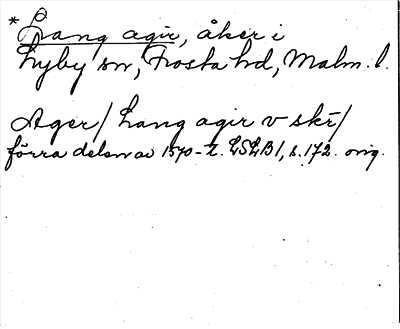 *Lang agir, åker i
Lyby sn, Frosta hd, Malm. l.
Ager/Lang agir v skr/
förra delen av 1570-t. LSLB1, s. 172. orig.